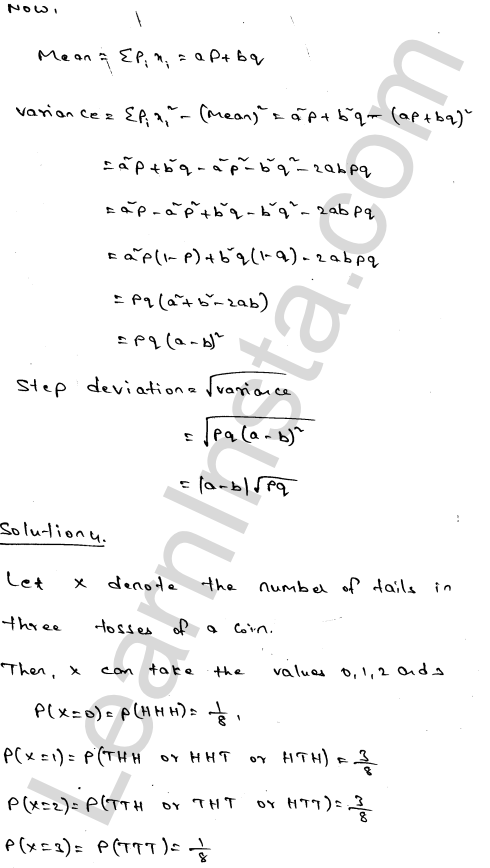 NOW,
Mean = Σpᵢxᵢ = ap+bq
variance = Σpᵢxᵢ² - (Mean)² = a²p + b²q - (ap+bq)²
= a²p + b²q - a²p² - b²q² - 2abpq
= a²p - a²p² + b²q - b²q² - 2abpq
= a²p(1-p) + b²q(1-q) - 2abpq
= pq(a²+b²-2ab)
= pq(a-b)²
Step deviation = √variance
= √pq(a-b)²
= |a-b|√pq
Solution 4.
Let x denote the number of tails in
three tosses of a coin.
Then, x can take the values 0,1,2 and 3
P(x=0) = P(HHH) = 1/8,
P(x=1) = P(THH or HHT or HTH) = 3/8
P(x=2) = P(TTH or THT or HTT) = 3/8
P(x=3) = P(TTT) = 1/8
LearnInsta.com